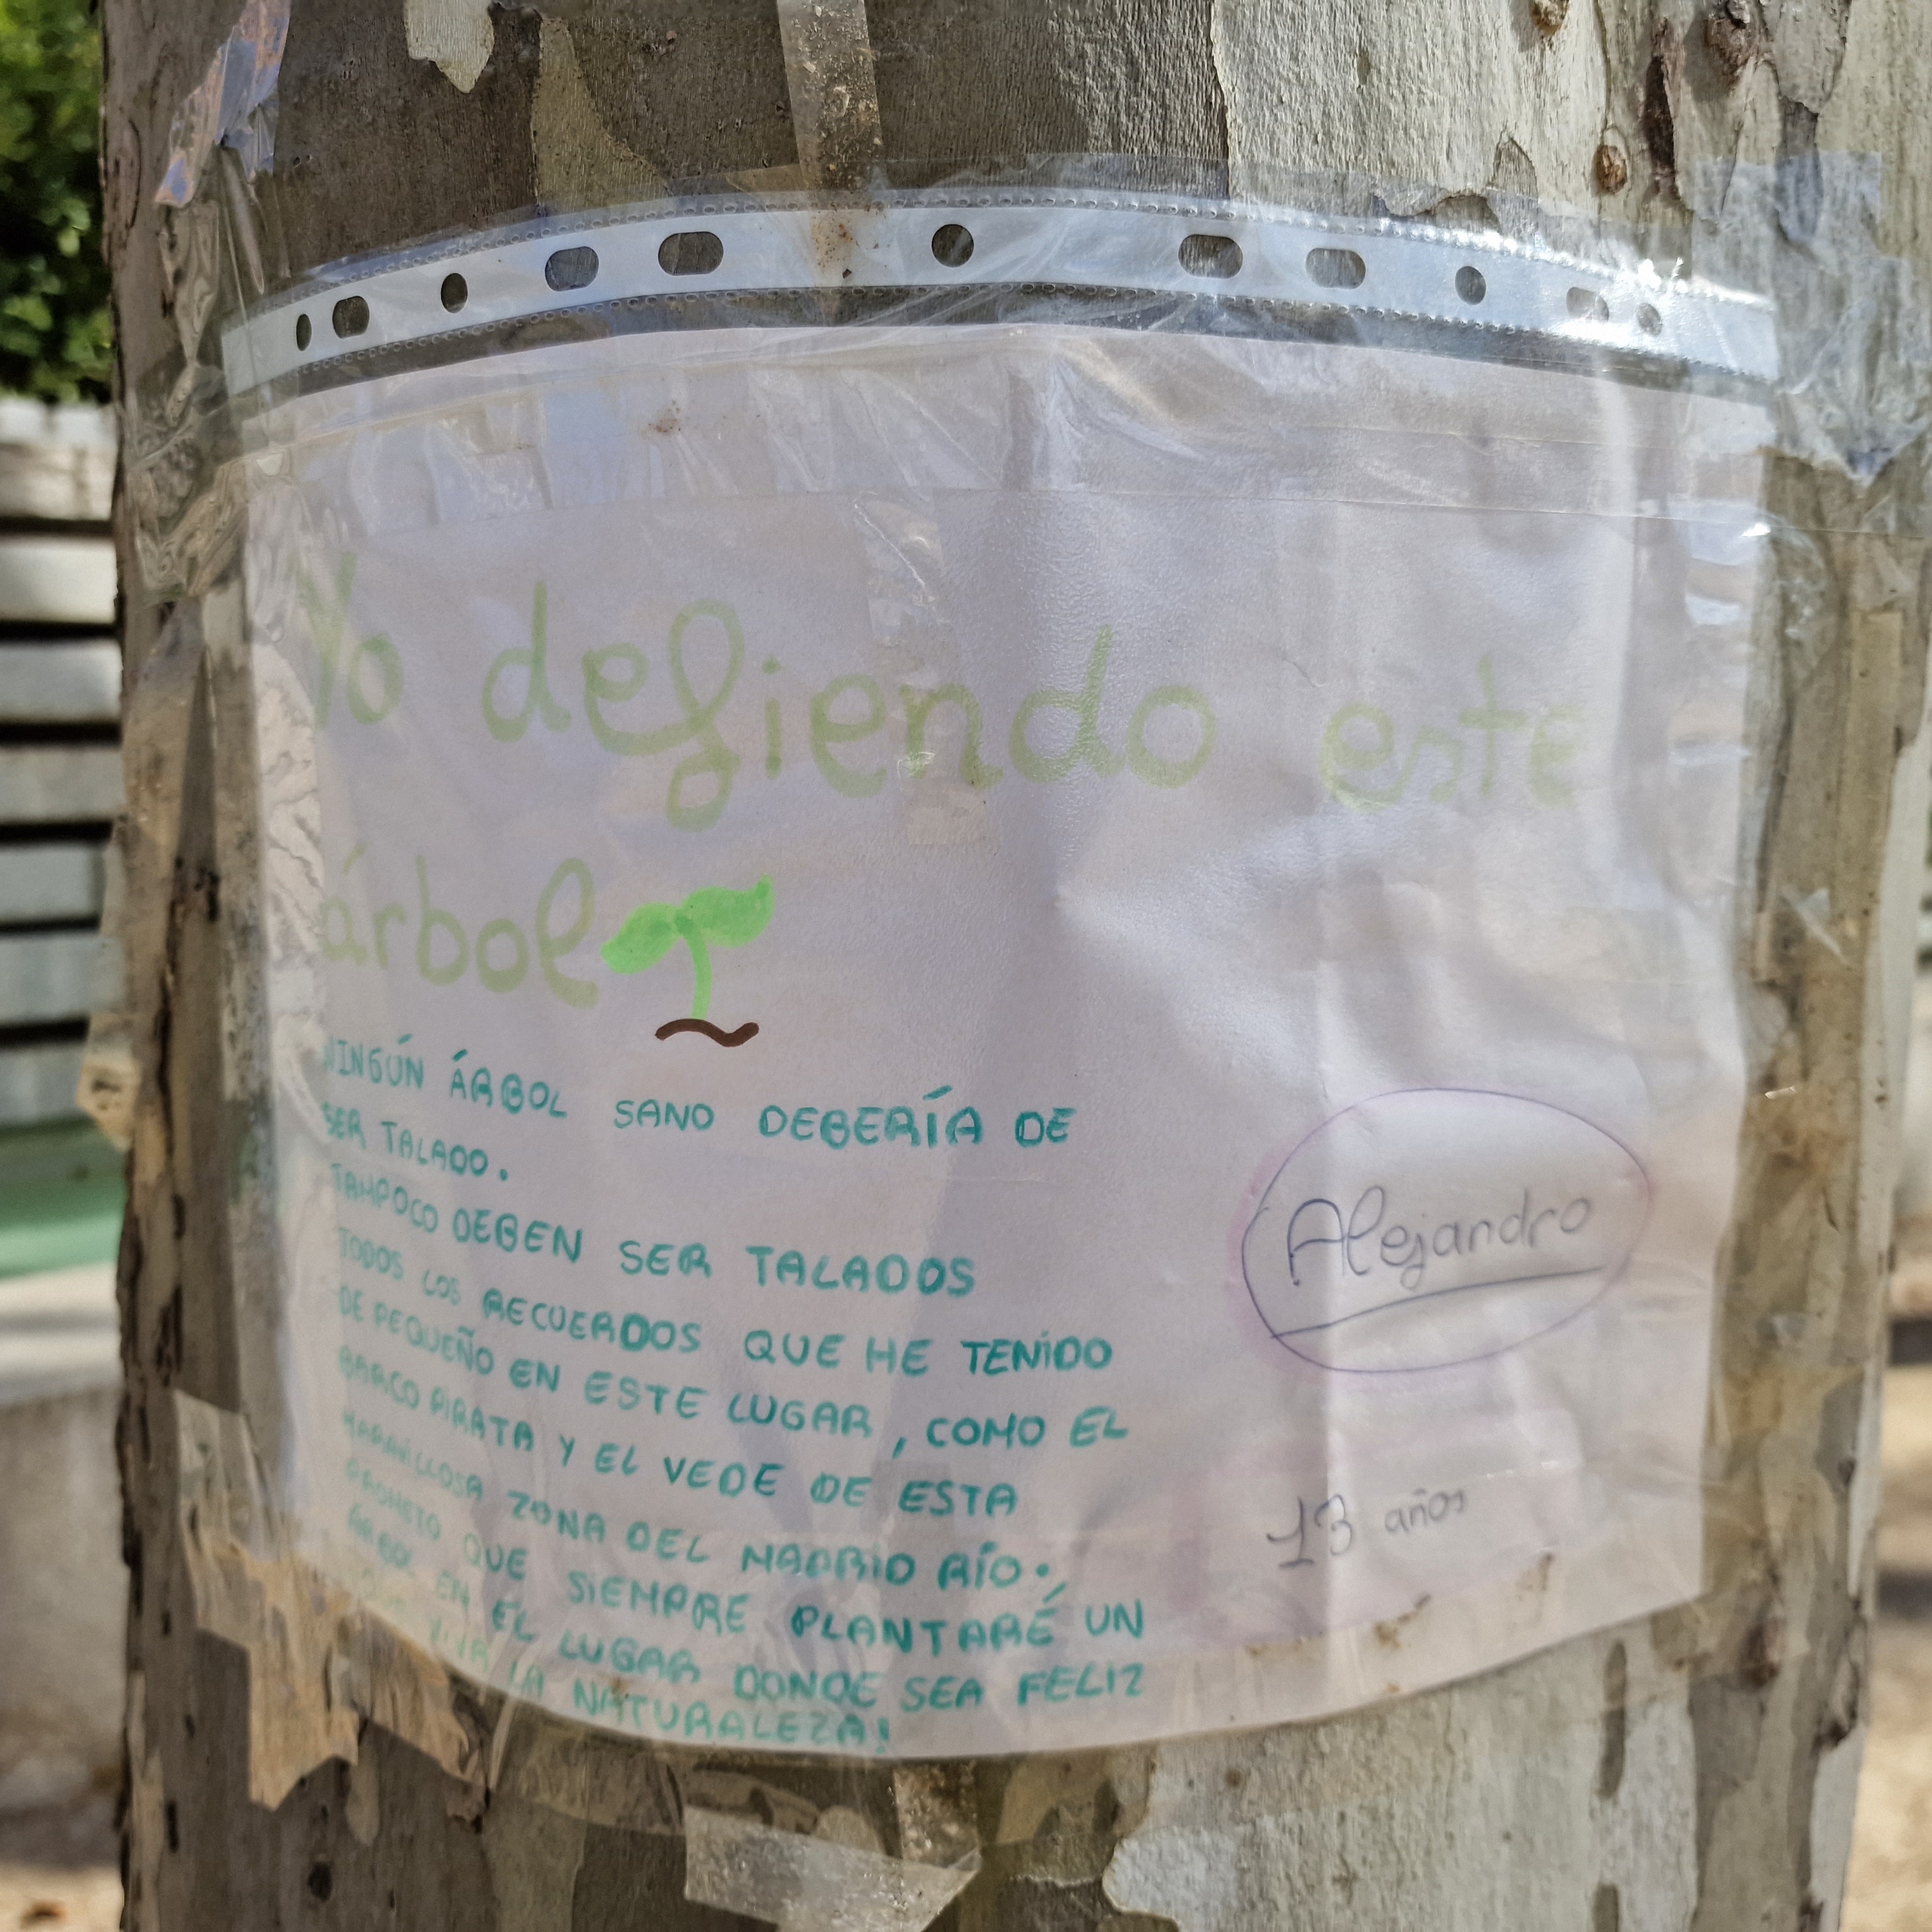 Yo defiendo este
árbol
NINGÚN ÁRBOL SANO DEBERÍA DE
SER TALADO.
TAMPOCO DEBEN SER TALADOS
TODOS LOS RECUERDOS QUE HE TENIDO
DE PEQUEÑO EN ESTE LUGAR, COMO EL
BARCO PIRATA Y EL VEDE DE ESTA
MARAVILLOSA ZONA DEL MADRID RÍO.
PROMETO QUE SIEMPRE PLANTARÉ UN
ÁRBOL EN EL LUGAR DONDE SEA FELIZ
VIVA LA NATURALEZA!
Alejandro
13 años